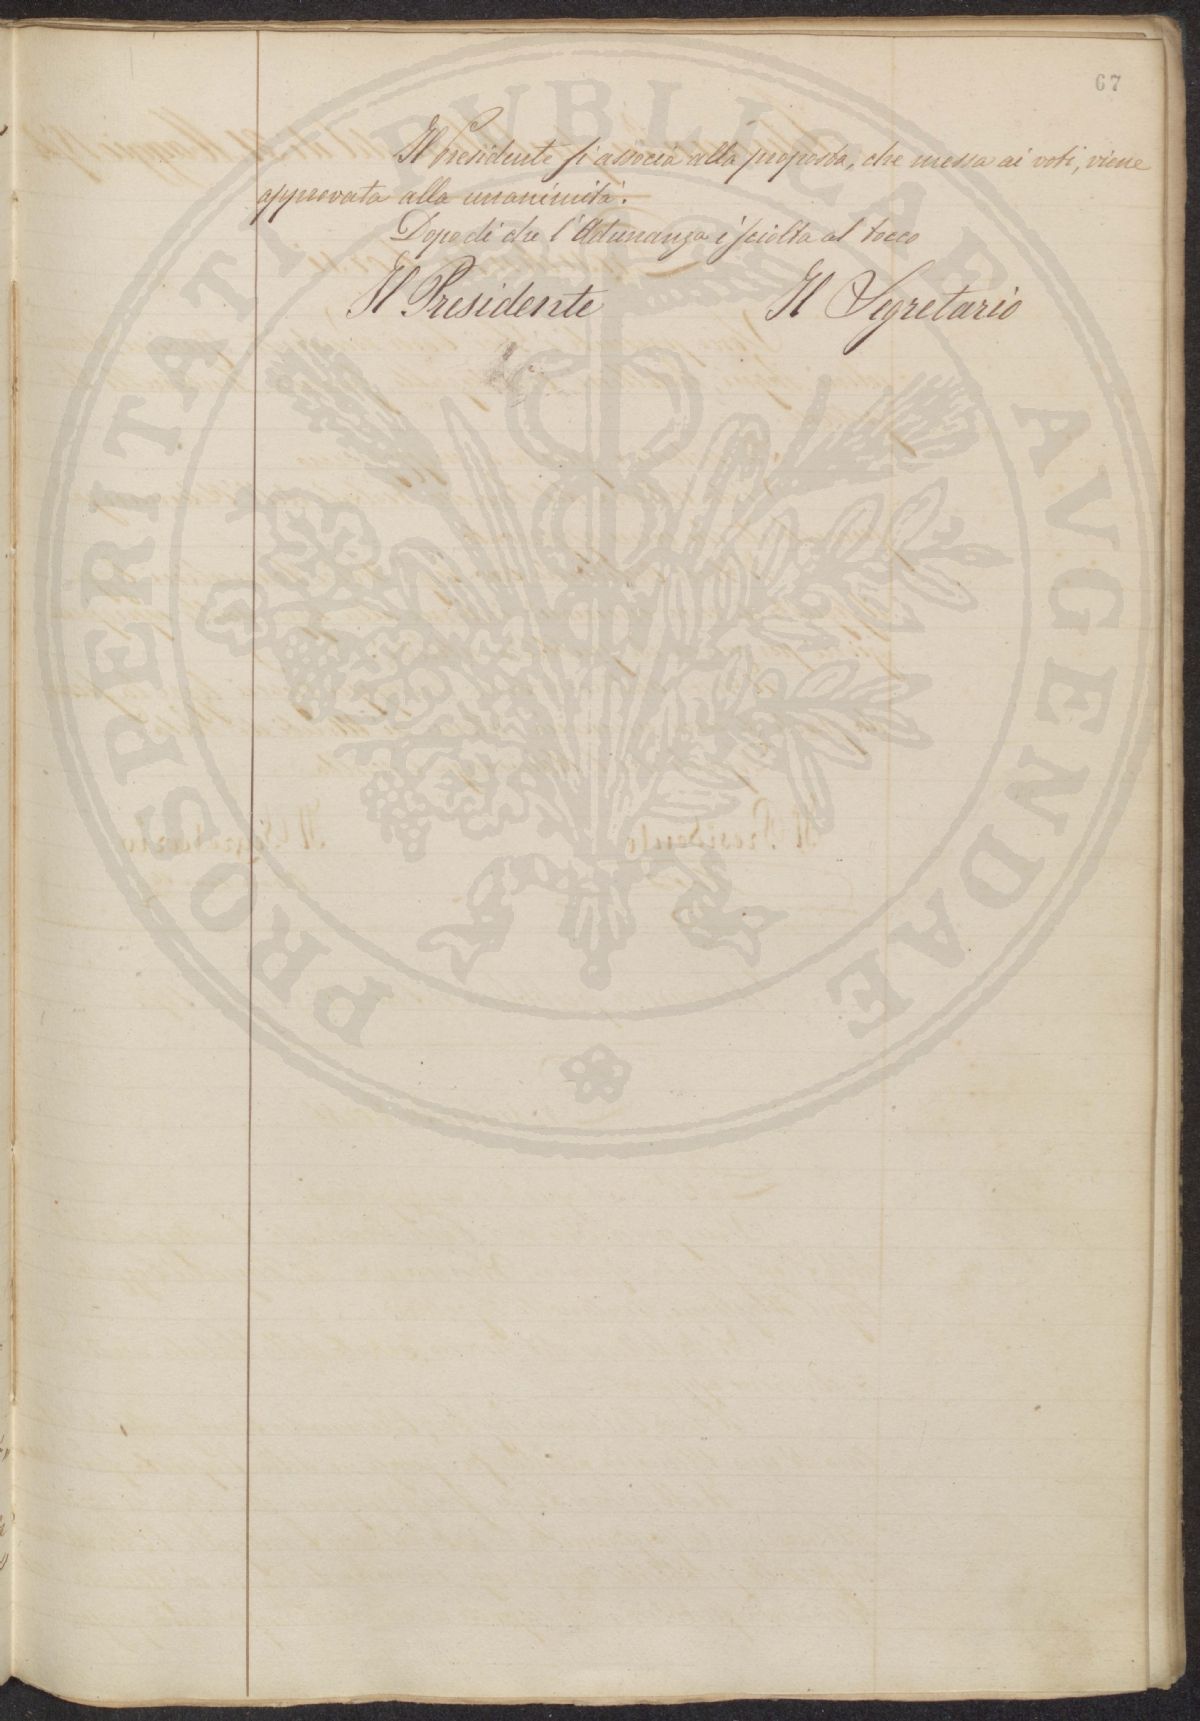 67
Il Presidente si associa alla proposta, che messa ai voti, viene
approvata alla unanimità.
Dopo di che l'Adunanza è sciolta al tocco
Il Presidente Il Segretario
PROSPERITATI PVBLICAE AVGENDAE